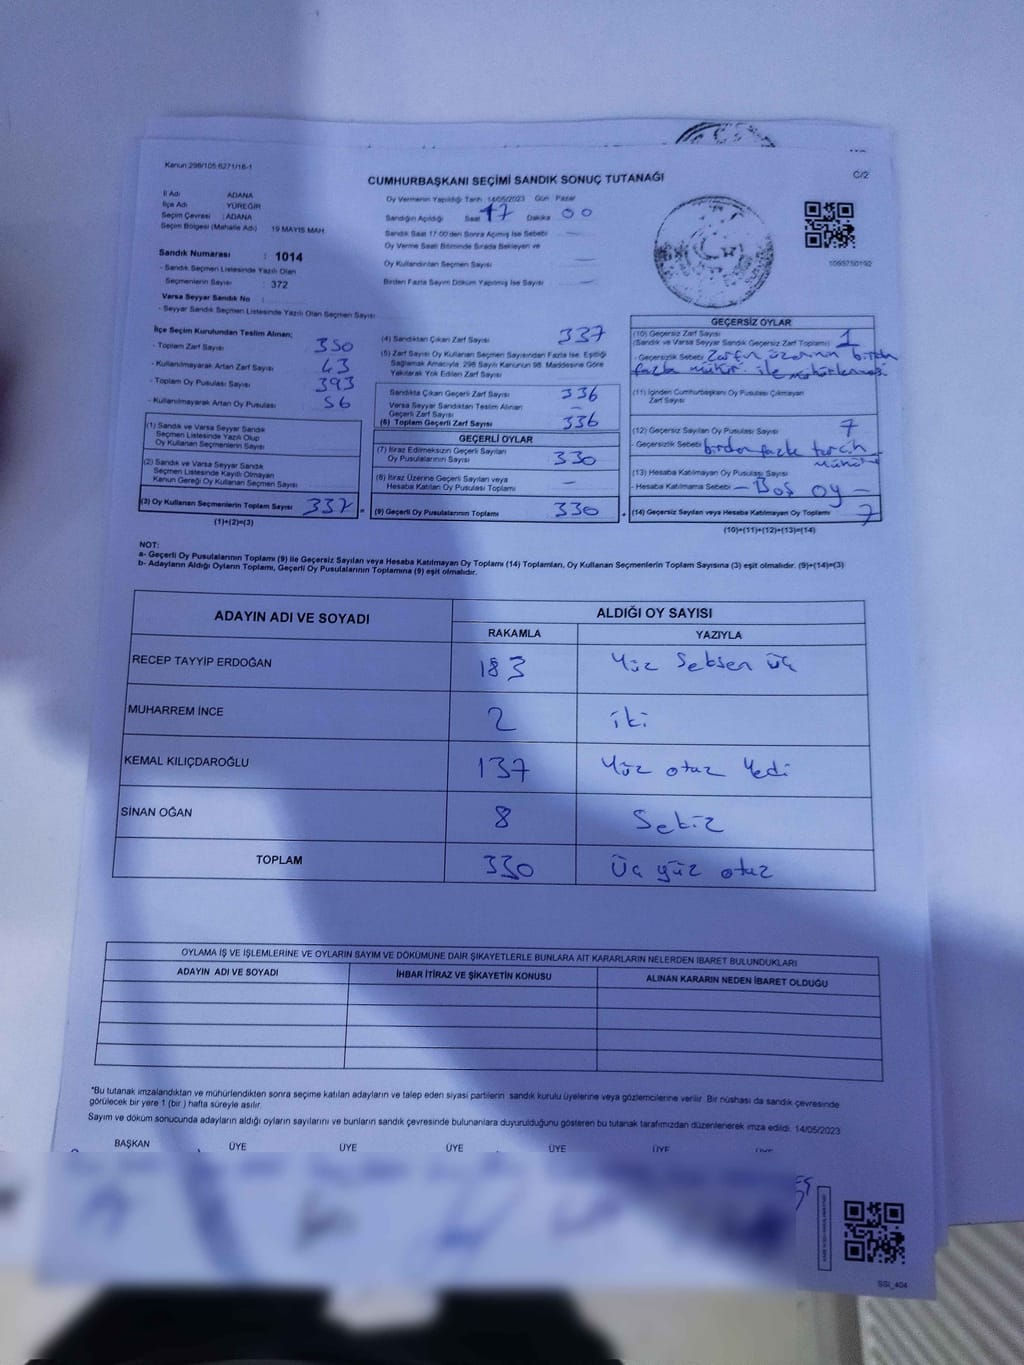 Kanun:298/105.6271/16-1
C/2
CUMHURBAŞKANI SEÇİMİ SANDIK SONUÇ TUTANAĞI
İl Adı ADANA
İlçe Adı YÜREĞİR
Seçim Çevresi :ADANA
Seçim Bölgesi (Mahalle Adı) 19 MAYIS MAH
Sandık Numarası : 1014
- Sandık Seçmen Listesinde Yazılı Olan
Seçmenlerin Sayısı : 372
Varsa Seyyar Sandık No
- Seyyar Sandık Seçmen Listesinde Yazılı Olan Seçmen Sayısı
Oy Vermenin Yapıldığı Tarih 14/05/2023 Gün Pazar
Sandığın Açıldığı Saat 17 Dakika 00
Sandık Saat 17:00'den Sonra Açılmış İse Sebebi —
Oy Verme Saati Bitiminde Sırada Bekleyen ve
Oy Kullandırılan Seçmen Sayısı —
Birden Fazla Sayım Döküm Yapılmış İse Sayısı —
1095750192
İlçe Seçim Kurulundan Teslim Alınan;
- Toplam Zarf Sayısı 350
- Kullanılmayarak Artan Zarf Sayısı 43
- Toplam Oy Pusulası Sayısı 393
- Kullanılmayarak Artan Oy Pusulası 56
(1) Sandık ve Varsa Seyyar Sandık
Seçmen Listesinde Yazılı Olup
Oy Kullanan Seçmenlerin Sayısı
(2) Sandık ve Varsa Seyyar Sandık
Seçmen Listesinde Kayıtlı Olmayan
Kanun Gereği Oy Kullanan Seçmen Sayısı
(3) Oy Kullanan Seçmenlerin Toplam Sayısı 337
(1)+(2)=(3)
(4) Sandıktan Çıkan Zarf Sayısı 337
(5) Zarf Sayısı Oy Kullanan Seçmen Sayısından Fazla İse, Eşitliği
Sağlamak Amacıyla, 298 Sayılı Kanunun 98. Maddesine Göre
Yakılarak Yok Edilen Zarf Sayısı
Sandıkta Çıkan Geçerli Zarf Sayısı 336
Varsa Seyyar Sandıktan Teslim Alınan
Geçerli Zarf Sayısı —
(6) Toplam Geçerli Zarf Sayısı 336
GEÇERLİ OYLAR
(7) İtiraz Edilmeksizin Geçerli Sayılan
Oy Pusulalarının Sayısı 330
(8) İtiraz Üzerine Geçerli Sayılan veya
Hesaba Katılan Oy Pusulası Toplamı —
(9) Geçerli Oy Pusulalarının Toplamı 330
GEÇERSİZ OYLAR
(10) Geçersiz Zarf Sayısı
(Sandık ve Varsa Seyyar Sandık Geçersiz Zarf Toplamı) 1
- Geçersizlik Sebebi Zarfın üzerinin birden
fazla mühür ile mühürlenmesi
(11) İçinden Cumhurbaşkanı Oy Pusulası Çıkmayan
Zarf Sayısı
(12) Geçersiz Sayılan Oy Pusulası Sayısı 7
- Geçersizlik Sebebi birden fazla tercih
mührü
(13) Hesaba Katılmayan Oy Pusulası Sayısı
- Hesaba Katılmama Sebebi – Boş oy –
(14) Geçersiz Sayılan veya Hesaba Katılmayan Oy Toplamı 7
(10)+(11)+(12)+(13)=(14)
NOT:
a- Geçerli Oy Pusulalarının Toplamı (9) ile Geçersiz Sayılan veya Hesaba Katılmayan Oy Toplamı (14) Toplamları, Oy Kullanan Seçmenlerin Toplam Sayısına (3) eşit olmalıdır. (9)+(14)=(3)
b- Adayların Aldığı Oyların Toplamı, Geçerli Oy Pusulalarının Toplamına (9) eşit olmalıdır.
ADAYIN ADI VE SOYADI ALDIĞI OY SAYISI
RAKAMLA YAZIYLA
RECEP TAYYİP ERDOĞAN 183 Yüz Seksen üç
MUHARREM İNCE 2 iki
KEMAL KILIÇDAROĞLU 137 Yüz otuz Yedi
SİNAN OĞAN 8 Sekiz
TOPLAM 330 Üç yüz otuz
OYLAMA İŞ VE İŞLEMLERİNE VE OYLARIN SAYIM VE DÖKÜMÜNE DAİR ŞİKAYETLERLE BUNLARA AİT KARARLARIN NELERDEN İBARET BULUNDUKLARI
ADAYIN ADI VE SOYADI İHBAR İTİRAZ VE ŞİKAYETİN KONUSU ALINAN KARARIN NEDEN İBARET OLDUĞU
*Bu tutanak imzalandıktan ve mühürlendikten sonra seçime katılan adayların ve talep eden siyasi partilerin sandık kurulu üyelerine veya gözlemcilerine verilir. Bir nüshası da sandık çevresinde
görülecek bir yere 1 (bir ) hafta süreyle asılır.
Sayım ve döküm sonucunda adayların aldığı oyların sayılarını ve bunların sandık çevresinde bulunanlara duyurulduğunu gösteren bu tutanak tarafımızdan düzenlenerek imza edildi. 14/05/2023
BAŞKAN ÜYE ÜYE ÜYE ÜYE ÜYE ÜYE
SSI_404